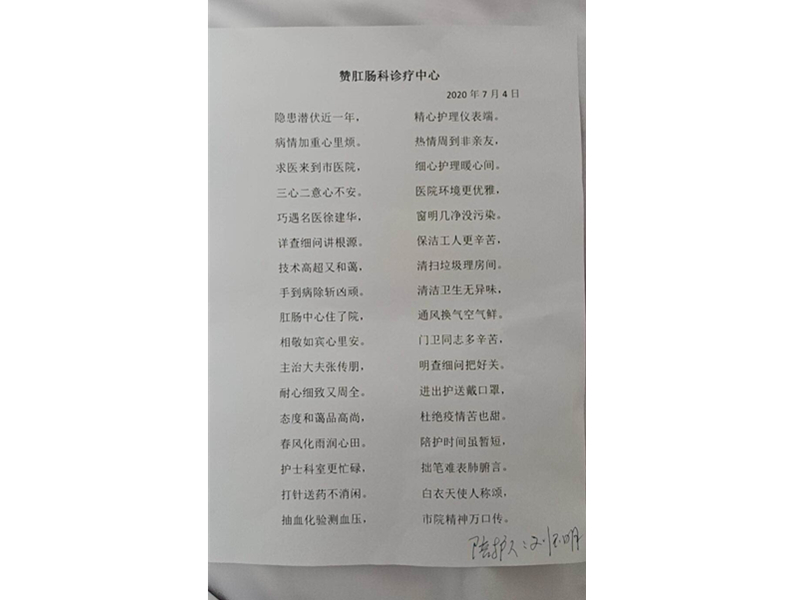 赞肛肠科诊疗中心
2020 年 7 月 4 日
隐患潜伏近一年，
病情加重心里烦。
求医来到市医院，
三心二意心不安。
巧遇名医徐建华，
详查细问讲根源。
技术高超又和蔼，
手到病除斩凶顽。
肛肠中心住了院，
相敬如宾心里安。
主治大夫张传朋，
耐心细致又周全。
态度和蔼品高尚，
春风化雨润心田。
护士科室更忙碌，
打针送药不消闲。
抽血化验测血压，
精心护理仪表端。
热情周到非亲友，
细心护理暖心间。
医院环境更优雅，
窗明几净没污染。
保洁工人更辛苦，
清扫垃圾理房间。
清洁卫生无异味，
通风换气空气鲜。
门卫同志多辛苦，
明查细问把好关。
进出护送戴口罩，
杜绝疫情苦也甜。
陪护时间虽暂短，
拙笔难表肺腑言。
白衣天使人称颂，
市院精神万口传。
陪护人：刘明